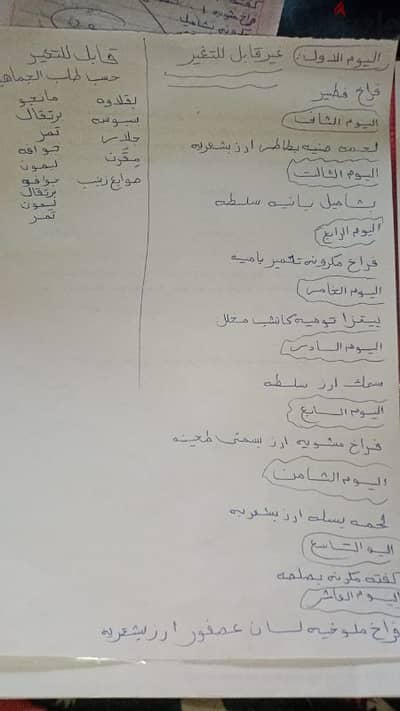 اليوم الاول: غير قابل للتغير
فراخ فطير
اليوم الثانى
لحمه صنيه بطاطس ارز بشعريه
اليوم الثالث
بشاميل بانيه سلطه
اليوم الرابع
فراخ مكرونه تخمير باميه
اليوم الخامس
بيتزا توميه كاتشب مخلل
اليوم السادس
سمك ارز سلطه
اليوم السابع
فراخ مشويه ارز بسمتى طحينه
اليوم الثامن
لحمه بسله ارز بشعريه
اليو التاسع
كفته مكرونه بصلصه
اليوم العاشر
فراخ ملوخيه لسان عصفور ارز بشعريه
قابل للتغير
حسب طلب الجماهير
بقلاوه مانجو
بسبوسه برتقال
جلاش تمر
جوافه
ليمون
صوابع زينب جوافه
برتقال
ليمون
تمر